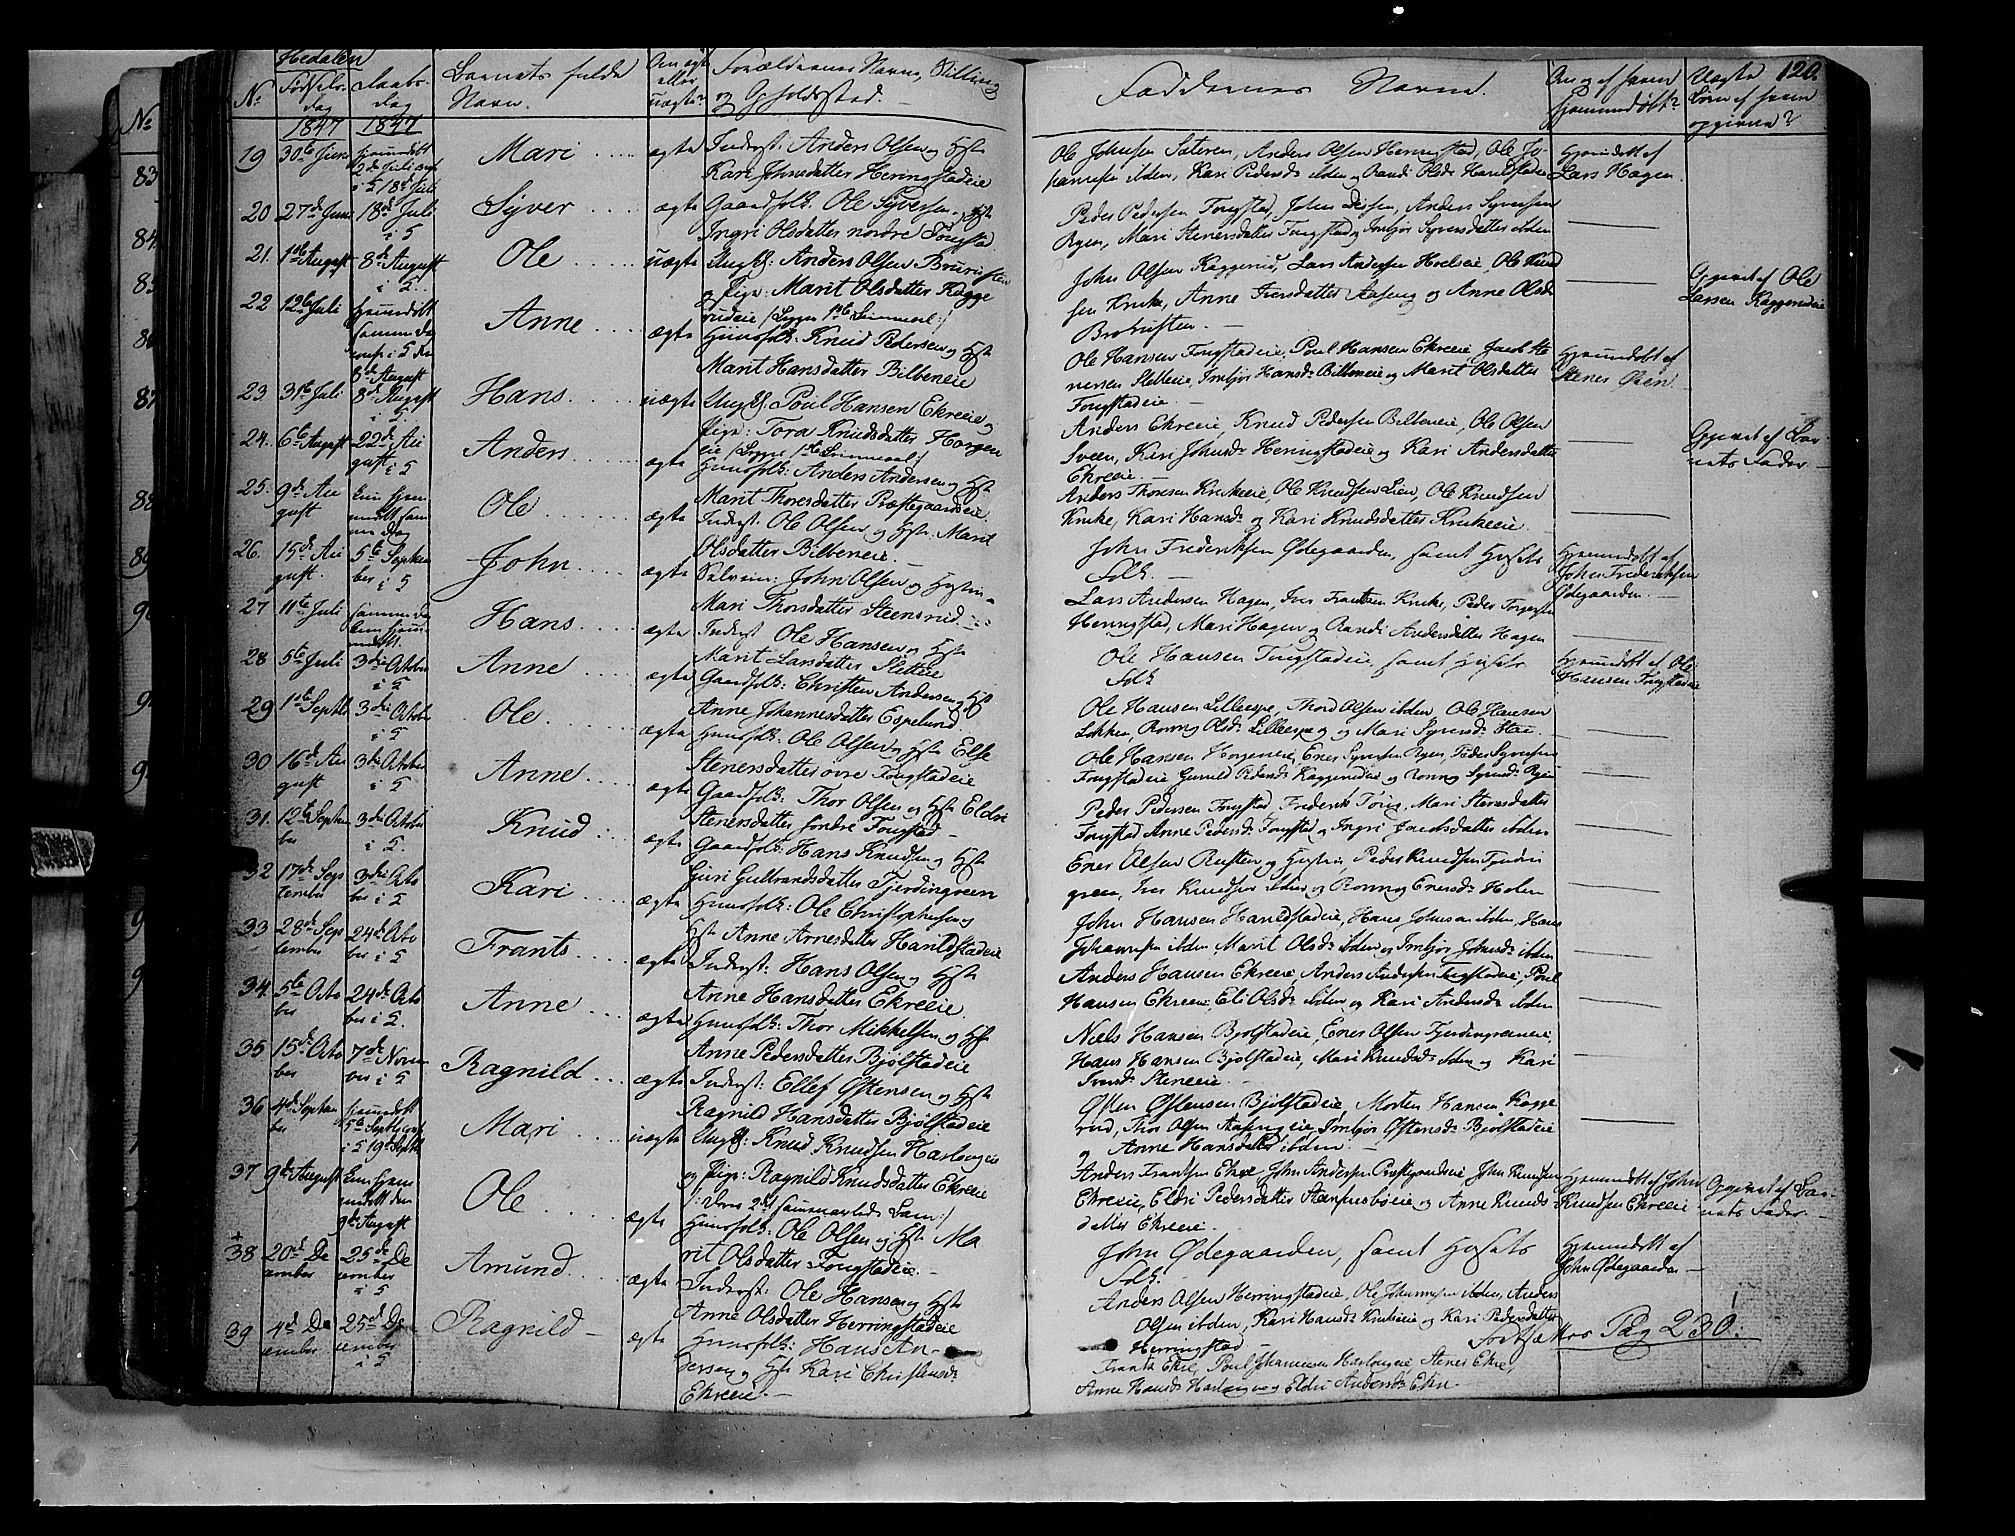 Hedalen
No Fødsels-dag Daabs-dag Barnets fulde Navn. Om ægte eller uægte? Forældrenes Navn, Stilling og Opholdssted. Faddernes Navne. Om og af hvem hjemmedøbt? Uægte Børn af hvem opgivne? 120.
1847 1847
19 30te Juni hjemmedøbt 2den Juli conf i 5 18de Juli Mari ægte Inderst: Anders Olsen og Hst
Kari Johnsdatter Heringstadeie
Ole Johnsen Sæteren, Anders Olsen Herringstad, Ole Jo-
hannesen ibden, Kari Pedersd. ibden og Randi Olsd. Harildstadeie
Hjemmedøbt af
Lars Hagen.
20 27de Juni 18de Juli i 5 Syver ægte Gaardfolk. Ole Syversen og Hst
Ingri Olsdatter nordre Fougstad
Peder Pedersen Fougstad, John Lersen, Anders Syversen
Rgen, Mari Stenersdatter Fougstad og Imbjør Syversdatter ibden
21. 1ste August 8de August i 5 Ole uægte Ungk: Anders Olsen Bruristen
og Pige: Marit Olsdatter Kagge
rudeie /: begges 1ste Leiermaal:/
John Olsen Kaggerud, Lars Andersen Hvelseie, Ole Knud
sen Kruke, Anne Iversdatter Aaseng og Anne Olsd.
Brobristen. —
Opgivet af Ole
Larsen Kaggerudeie
22 12te Juli hjemmedøbt samme Dag conf i 5 den 8de August Anne ægte Huusfolk: Knud Pedersen og Hst
Marit Hansdatter Bilbeneie
Ole Hansen Fougstadeie, Poul Hansen Ekreeie, Jacob Ste
nersen Sletteie, Imbjør Hansd. Bilbeneie og Marit Olsdatter
Fougstadeie. —
Hjemmedøbt af
Stener Oien
23 31te Juli 8de August i 5 Hans uægte Ungk. Poul Hansen Ekreeie og
Pige: Tora Knudsdatter Horgen
eie /: begges 1ste Leiermaal:/
Anders Ekreeie, Knud Pedersen Bilbeneie, Ole Olsen
Sveen, Kari Johnsd. Herringstadeie og Kari Andersdatter
Ekreeie. —
Opgivet af Bar-
nets Fader. —
24. 6te August 22de August i 5 Anders ægte Huusfolk: Anders Andersen og Hst
Marit Thoresdatter Præstegaardseie.
Anders Thoresen Krukeeie, Ole Knudsen Lien, Ole Knudsen
Kruke, Kari Hansd. og Kari Knudsdatter Krukeeie.
25. 9de August Kun hjemmedøbt samme Dag Ole ægte Inderst: Ole Olsen og Hst. Marit
Olsdatter Bilbeneie. —
John Frederiksen Ødegaarden, samt Husets
Folk. —
Hjemmedøbt af
John Frederiksen
Ødegaarden. —
26. 15de August. 5te September i 5 John ægte Selveier: John Olsen og Hustru
Mari Thorsdatter Steensrud
Lars Andersen Hagen, Iver Frantsen Kruke, Peder Torgersen
Herringstad, Mari Hagen og Randi Andersdatter Hagen
27 11te Juli samme Dag kun hjemmedøbt. Hans ægte Inderst Ole Hansen og Hst
Marit Larsdatter Sletteie
Ole Hansen Fougstadeie samt Husets
Folk
Hjemmedøbt af Ole
Hansen Fougstadeie
28 5te Juli 3die October i 5 Anne ægte Gaardfolk: Christen Andersen og Hst
Anne Johannesdatter Espelund
Ole Hansen Lilleespe, Thord Olsen ibden Ole Hansen
Lokken, Ronnog Olsd. Lilleespe og Mari Syversd.
29 1ste Septbr 3die October i 5 Ole ægte Huusfolk: Ole Olsen og Hst Else
Stenersdatter øvre Fougstadeie
Ole Hansen Horgeneie, Ener Syversen Rgen, Peder Syversen
Fougstadeie Gunild Pedersd. Kaggerudeie og Ronnog Syversd. Rgen
30 16de August 3die October Anne ægte Gaardfolk: Thor Olsen og Hst Eldri
Stenersdatter søndre Fougstad —
Peder Pedersen Fougstad, Frederik Foug, Mari Stenersdatter
Fougstad Anne Pedersd. Fougstad og Ingri Jacobsdatter ibden
31. 12te September 3die October i 5. Knud ægte Gaardfolk: Hans Knudsen og Hst
Guri Gulbrandsdatter Tjerdingreen
Ener Olsen Rusten og Hustru, Peder Knudsen Tjerdin
green, Iver Knudsen ibden og Ronnog Enersd. Holen
32 17de September 3die October i 5 Kari ægte Huusfolk: Ole Christophersen og
Hst Anne Arnesdatter Harildstadeie
John Hansen Harildstadeie, Hans Johnsen ibden, Hans
Johannesen ibden, Marit Olsd. ibden og Imbjør Johnsd. ibden
33 28de September 24de October i 5 Frants ægte Inderst: Hans Olsen og Hst
Anne Hansdatter Ekreeie.
Anders Hansen Ekreeie, Anders Andersen Fougstadeie, Poul
Hansen Ekreeie, Eli Olsd. ibden og Kari Andersd. ibden
34. 5te October 24de October i 5. Anne ægte Huusfolk: Thor Mikkelsen og Hst
Anne Pedersdatter Bjølstadeie
Niels Hansen Bjølstadeie, Ener Olsen Tjerdingreeneie,
Hans Hansen Bjølstadeie, Mari Knudsd. ibden og Kari
Iversd. Steneeie.
35 15de October 7de November i 5 Ragnild ægte Inderst: Ellef Østensen og Hst
Ragnild Hansdatter Bjølstadeie
Østen Østensen Bjølstadeie, Morten Hansen Kagge
rud, Thor Olsen Aasengeie, Imbjør Østensd. Bjølstadeie
og Anne Hansdatter ibden. —
36 4de September hjemmedøbt 5te Septbr conf i 5 19de Septbr Mari uægte Ungk: Knud Knudsen Haslongeie
og Pige: Ragnild Knudsdatter Ekreeie
/: Deres 2det sammenavlede Barn:/
Anders Frantsen Ekre, John Andersen Præstegaardseie John Knudsen
Ekreeie, Eldri Pedersdatter Stampesboeie og Anne Knuds-
datter Ekreeie. —
Hjemmedøbt af John
Knudsen Ekreeie
Opgivet af Bar-
nets Fader. —
37 9de August Kun hjemmedøbt den 9de August Ole ægte Huusfolk: Ole Olsen og Hst. Ma
rit Olsdatter Fougstadeie. —
John Ødegaarden, samt Husets
Folk. —
Hjemmedøbt af
John Ødegaarden —
38 20de December 25de December i 5 Amund ægte Inderst: Ole Hansen og Hst
Anne Olsdatter Herringstadeie
Anders Olsen Herringstadeie, Ole Johannesen ibden, Anders
Olsen ibden, Kari Hansd. Krukeeie og Kari Pedersdatter
Herringstad
39 4de December 25de December i 5 Ragnild — ægte Huusfolk: Hans An-
dersen og Hst Kari Christensd.
Ekreeie. —
Frants Ekre, Poul Johannesen Haslongeie, Stener Ekre,
Anne Hansd. Haslongeie og Eldri Andersd. Ekre.
fortsættes Pag 230.
No
83
84.
85
86
87
88
89
90